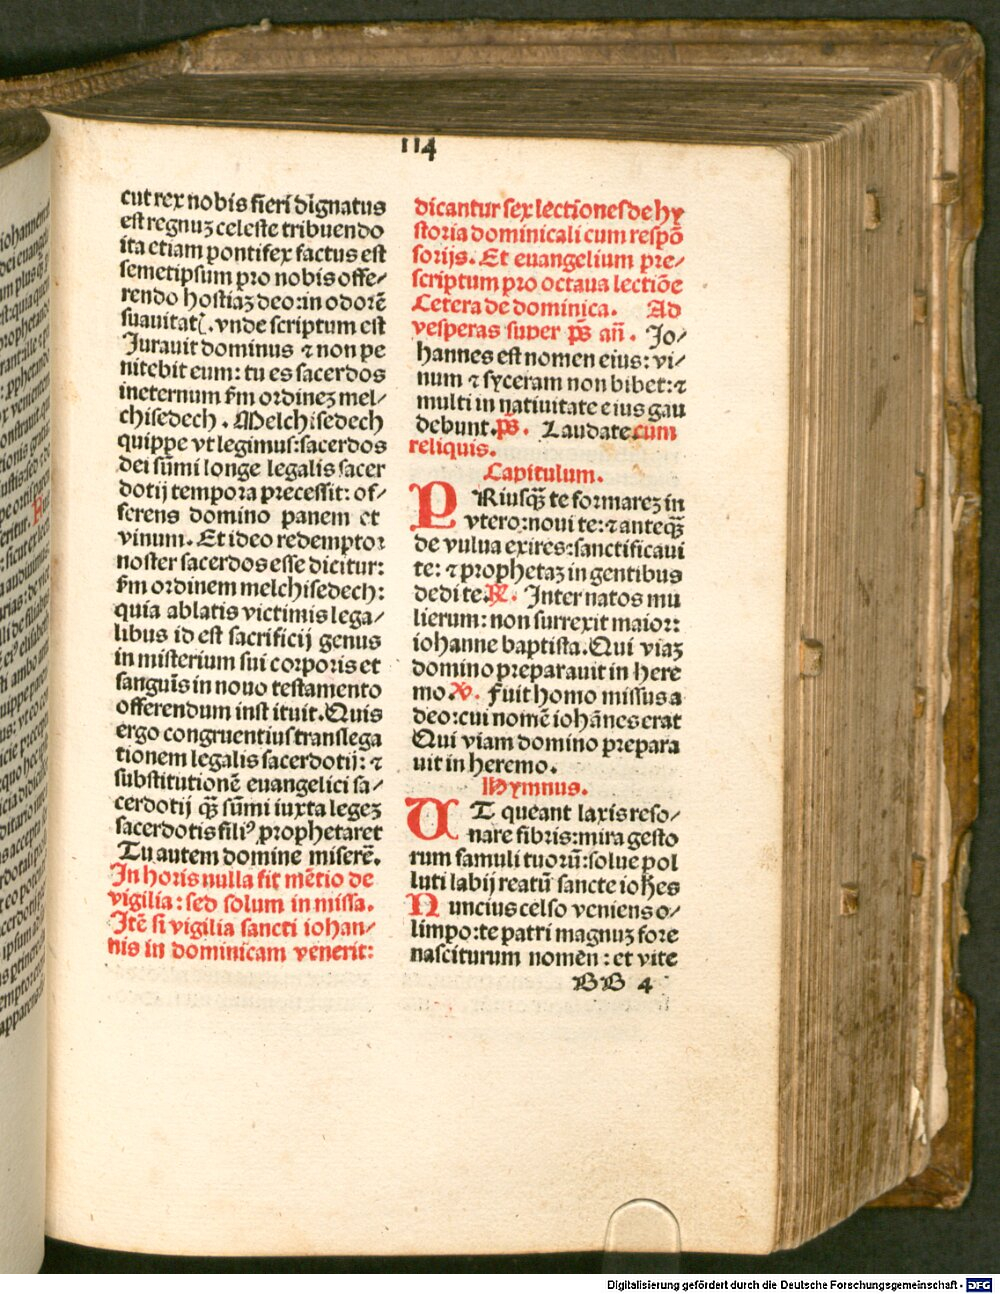 114
cut rex nobis fieri dignatus
est regnuꝫ celeste tribuendo
ita etiam pontifex factus est
semetipsum pro nobis offe⸗
rendo hostiaꝫ deo: in odorē
suauitatꝭ. vnde scriptum est
Jurauit dominus ⁊ non pe
nitebit eum: tu es sacerdos
ineternum ẜm ordineꝫ mel⸗
chisedech. Melchisedech
quippe vt legimus: sacerdos
dei sūmi longe legalis sacer
dotij tempora precessit: of⸗
ferens domino panem et
vinum. Et ideo redemptor
noster sacerdos esse dicitur:
ẜm ordinem melchisedech:
quia ablatis victimis lega⸗
libus id est sacrificij genus
in misterium sui corporis et
sanguīs in nouo testamento
offerendum inst ituit. Quis
ergo congruentius translega
tionem legalis sacerdotij: ⁊
substitutionē euangelici sa⸗
cerdotij qꝫ̄ sūmi iuxta legeꝫ
sacerdotis filiꝰ prophetaret
Tu autem domine miserē.
In horis nulla fit mētio de
vigilia: sed solum in missa.
Itē si vigilia sancti iohan⸗
nis in dominicam venerit:
dicantur sex lectiones de hy
storia dominicali cum respō
sorijs. Et euangelium pre⸗
scriptum pro octaua lectiōe
Cetera de dominica. Ad
vesperas super p̄s añ. Jo⸗
hannes est nomen eius: vi⸗
num ⁊ syceram non bibet: ⁊
multi in natiuitate eius gau
debunt. p̄s. Laudate. cum
reliquis.
Capitulum.
PRiusqꝫ̄ te formareꝫ in
vtero: noui te: ⁊ anteqꝫ̄
de vulua exires: sanctificaui
te: ⁊ prophetaꝫ in gentibus
dedi te. ℟. Inter natos mu
lierum: non surrexit maior:
iohanne baptista. Qui viaꝫ
domino preparauit in here
mo. ℣. Fuit homo missus a
deo: cui nomē iohānes erat
Qui viam domino prepara
uit in heremo.
Hymnus.
UT queant laxis reso⸗
nare fibris: mira gesto
rum famuli tuorū: solue pol
luti labij reatū sancte ioħes
Nuncius celso veniens o⸗
limpo: te patri magnuꝫ fore
nasciturum nomen: et vite
BB 4
Digitalisierung gefördert durch die Deutsche Forschungsgemeinschaft - DFG